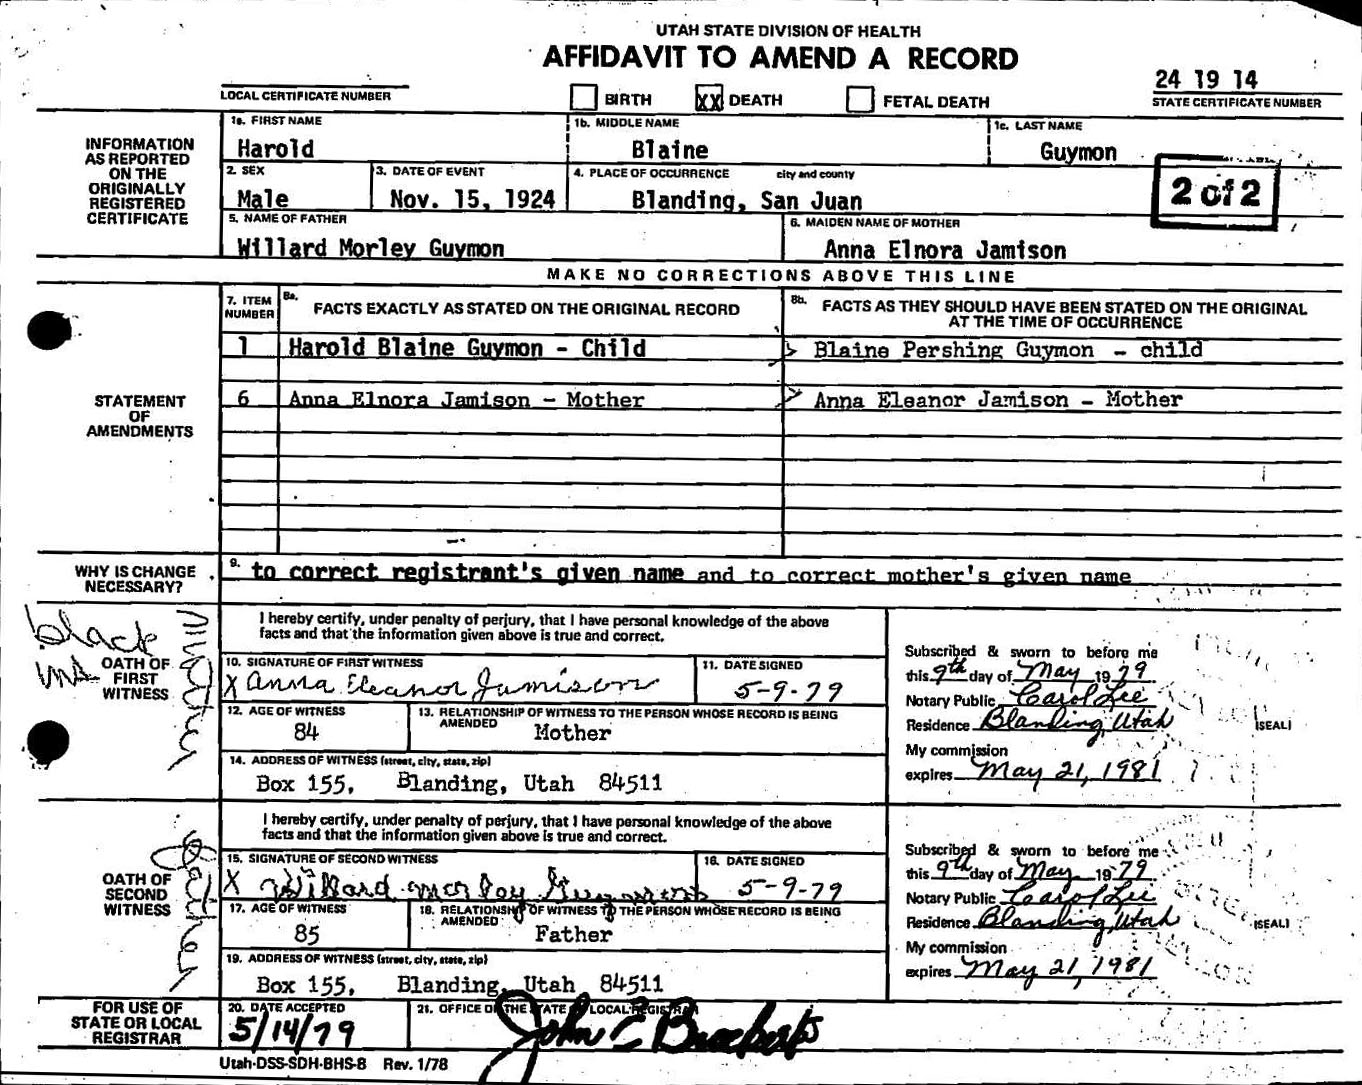 UTAH STATE DIVISION OF HEALTH
AFFIDAVIT TO AMEND A RECORD
24 19 14
LOCAL CERTIFICATE NUMBER
BIRTH XX DEATH FETAL DEATH
STATE CERTIFICATE NUMBER
INFORMATION
AS REPORTED
ON THE
ORIGINALLY
REGISTERED
CERTIFICATE
1a. FIRST NAME 1b. MIDDLE NAME 1c. LAST NAME
Harold Blaine Guymon
2. SEX 3. DATE OF EVENT 4. PLACE OF OCCURRENCE city and county
Male Nov. 15, 1924 Blanding, San Juan
2 of 2
5. NAME OF FATHER 6. MAIDEN NAME OF MOTHER
Willard Morley Guymon Anna Elnora Jamison
MAKE NO CORRECTIONS ABOVE THIS LINE
STATEMENT
OF
AMENDMENTS
7. ITEM
NUMBER
8a. FACTS EXACTLY AS STATED ON THE ORIGINAL RECORD
8b. FACTS AS THEY SHOULD HAVE BEEN STATED ON THE ORIGINAL
AT THE TIME OF OCCURRENCE
1 Harold Blaine Guymon - Child Blaine Pershing Guymon - child
6 Anna Elnora Jamison - Mother Anna Eleanor Jamison - Mother
WHY IS CHANGE
NECESSARY?
9. to correct registrant's given name and to correct mother's given name
black
ink
Mother
OATH OF
FIRST
WITNESS
I hereby certify, under penalty of perjury, that I have personal knowledge of the above
facts and that the information given above is true and correct.
10. SIGNATURE OF FIRST WITNESS 11. DATE SIGNED
X Anna Eleanor Jamison 5-9-79
12. AGE OF WITNESS 13. RELATIONSHIP OF WITNESS TO THE PERSON WHOSE RECORD IS BEING
AMENDED
84 Mother
14. ADDRESS OF WITNESS (street, city, state, zip)
Box 155, Blanding, Utah 84511
Subscribed & sworn to before me
this 9th day of May 1979
Notary Public Carol Lee
Residence Blanding, Utah
(SEAL)
My commission
expires May 21, 1981
Father
OATH OF
SECOND
WITNESS
I hereby certify, under penalty of perjury, that I have personal knowledge of the above
facts and that the information given above is true and correct.
15. SIGNATURE OF SECOND WITNESS 16. DATE SIGNED
X Willard Morley Guymon 5-9-79
17. AGE OF WITNESS 18. RELATIONSHIP OF WITNESS TO THE PERSON WHOSE RECORD IS BEING
AMENDED
85 Father
19. ADDRESS OF WITNESS (street, city, state, zip)
Box 155, Blanding, Utah 84511
Subscribed & sworn to before me
this 9th day of May 1979
Notary Public Carol Lee
Residence Blanding, Utah
(SEAL)
My commission
expires May 21, 1981
FOR USE OF
STATE OR LOCAL
REGISTRAR
20. DATE ACCEPTED 21. OFFICE OF THE STATE OR LOCAL REGISTRAR
5/14/79 John E Brockert
Utah-DSS-SDH-BHS-8 Rev. 1/78